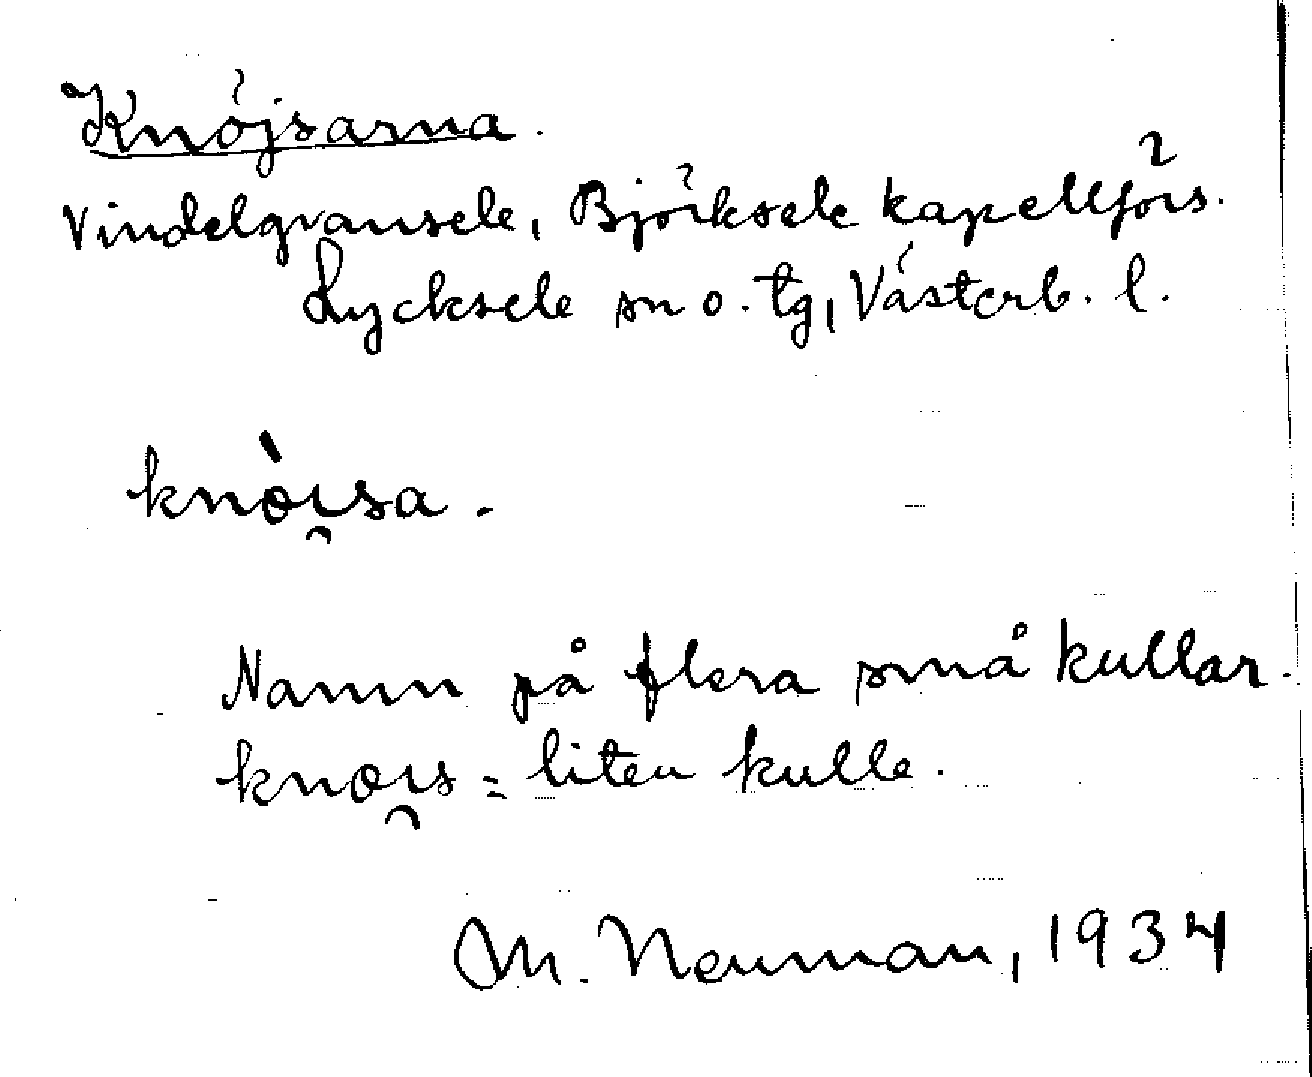 Knöjsarna.
Vindelgransele, Björksele kapellförs.
Lycksele sn o. tg, Västerb. l.
knö̀i̯sa.
Namn på flera små kullar.
knöi̯s = liten kulle.
M. Neuman, 1934